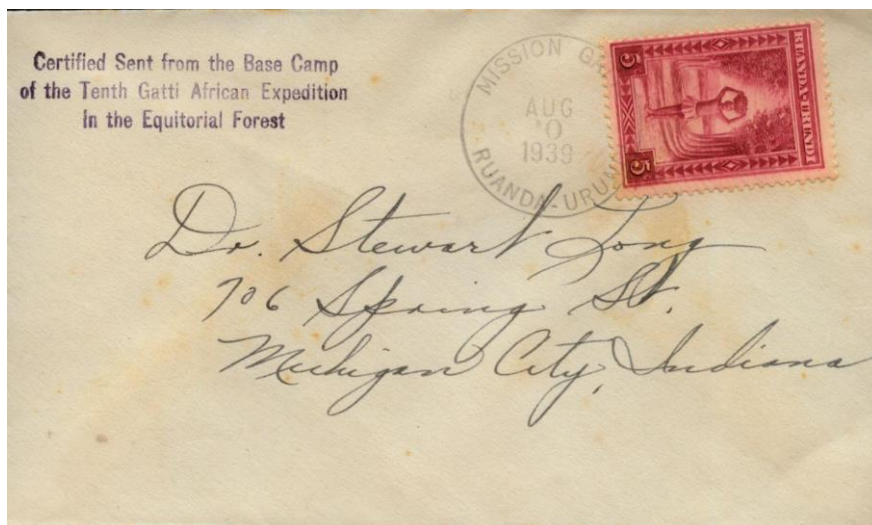 Certified Sent from the Base Camp
of the Tenth Gatti African Expedition
in the Equitorial Forest
MISSION GA
AUG
0
1939
RUANDA-URUN
5
RUANDA-URUNDI
5
Dr. Stewart Long
706 Spring St.
Michigan City, Indiana